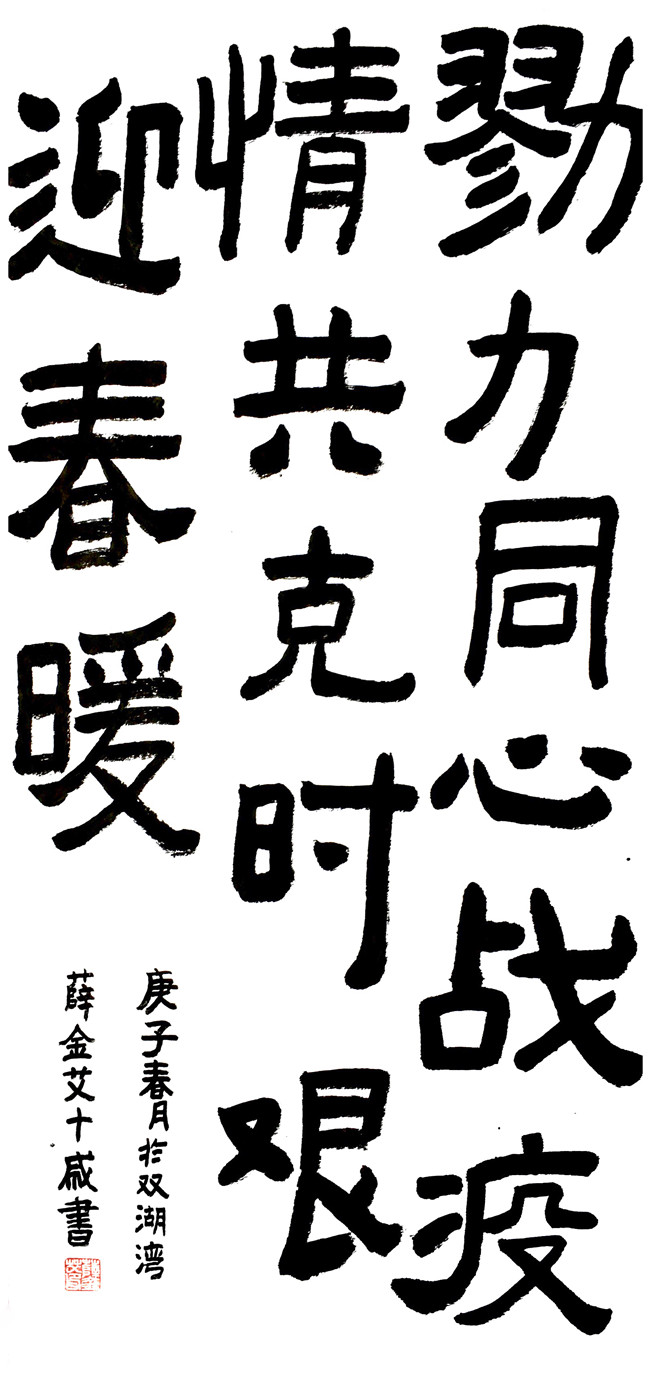 勠力同心战疫
情共克时艰
迎春暖
庚子春月於双湖湾
薛金艾十歲書